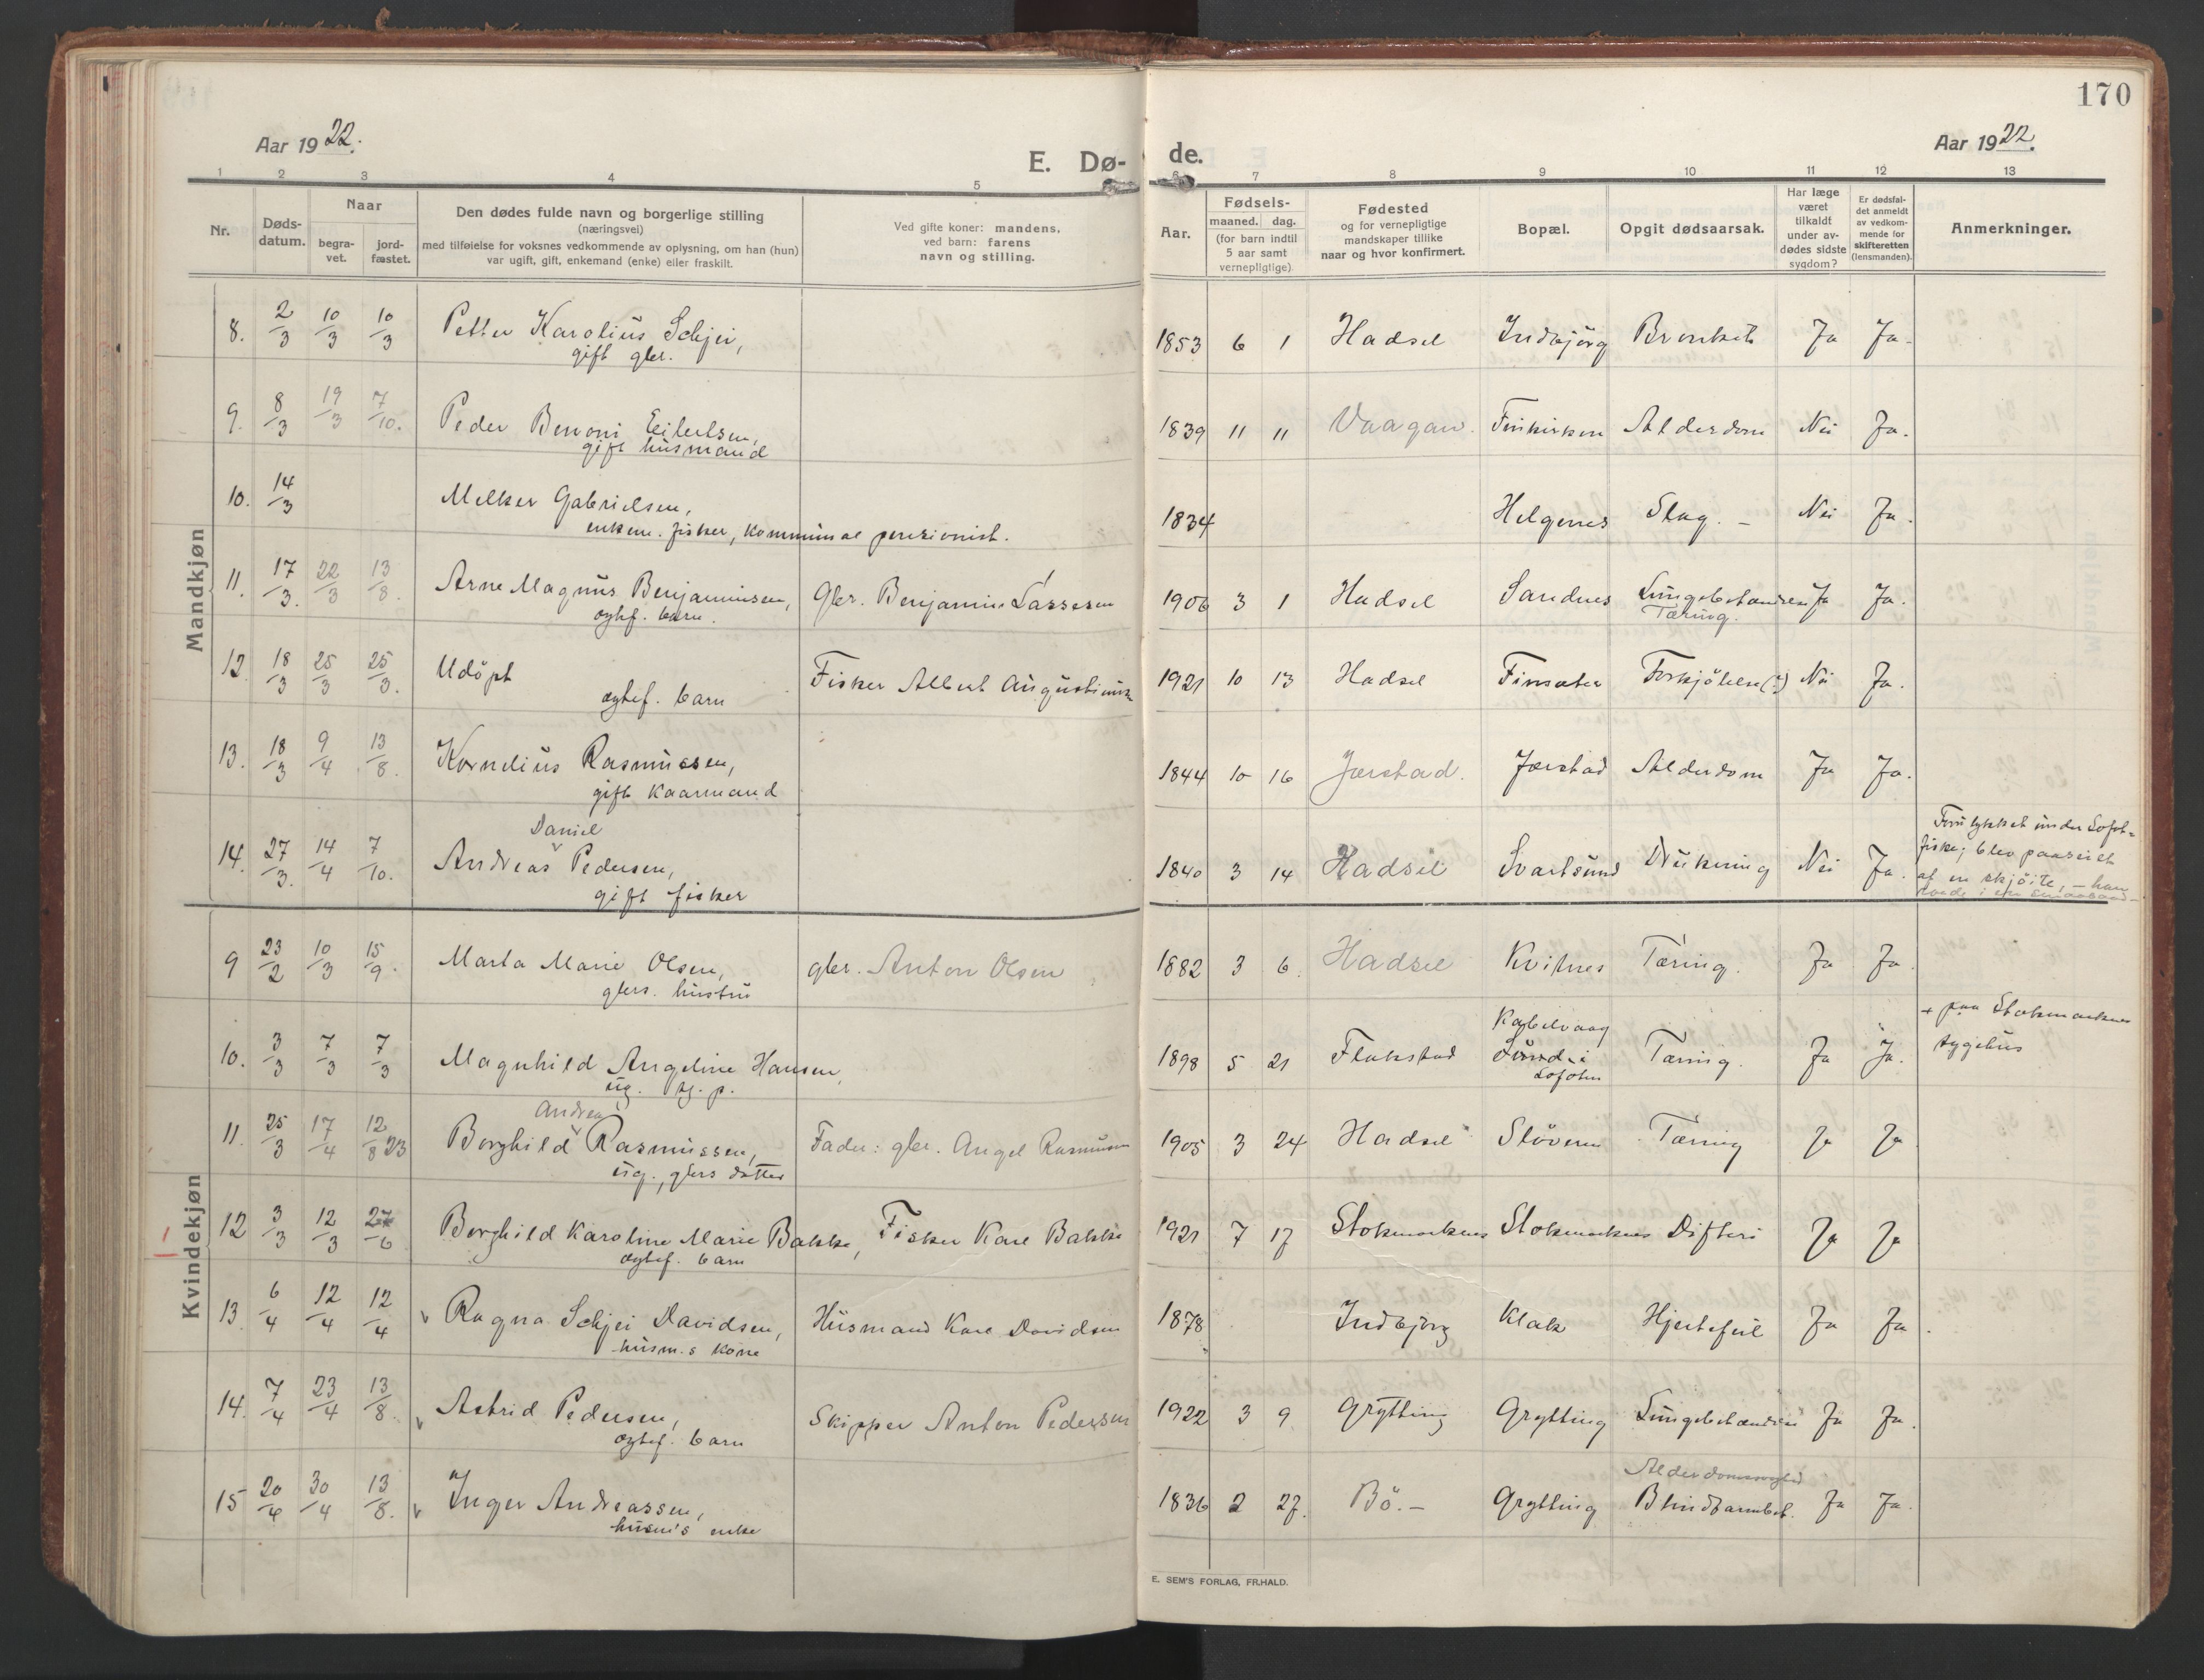 170
Aar 1922.
E. Dø-
de.
Aar 1922.
1 2 3 4 5 6 7 8 9 10 11 12 13
Nr.
Døds-
datum.
Naar
begra-
vet.
jord-
fæstet.
Den dødes fulde navn og borgerlige stilling
(næringsvei)
med tilføielse for voksnes vedkommende av oplysning, om han (hun)
var ugift, gift, enkemand (enke) eller fraskilt.
Ved gifte koner: mandens,
ved barn: farens
navn og stilling.
Aar.
Fødsels-
maaned. dag.
(for barn indtil
5 aar samt
vernepligtige)
Fødested
og for vernepligtige
mandskaper tillike
naar og hvor konfirmert.
Bopæl.
Opgit dødsaarsak.
Har læge
været
tilkaldt
under av-
dødes sidste
sygdom?
Er dødsfal-
det anmeldt
av vedkom-
mende for
skifteretten
(lensmanden).
Anmerkninger.
Mandkjøn
8. 2/3 10/3 10/3 Petter Karolius Schjei, 1853 6 1 Hadsel Indbjörg Bronkit Ja Ja.
gift gbr.
9. 8/3 19/3 7/10. Peder Benoni Eilertsen, 1839 11 11 Vaagan. Alderdom Nei Ja.
gift husmand
10. 14/3 Melker Gabrielsen, 1834 Helgenes Slag. — Nei Ja.
enkem. fisker, kommunal pensionist.
11. 17/3. 22/3 13/8. Arne Magnus Benjaminsen, Gbr. Benjamin Lassesen 1906 3 1 Hadsel Sandnes Lungebetændelse Ja Ja.
egtef. barn. Tæring.
12. 18/3 25/3 25/3. Udöpt Fisker Albert Augustinus 1921 10 13 Hadsel Finsæter Forkjölelse(?) Nei Ja.
egtef. barn
13. 18/3 9/4 13/8. Kornelius Rasmussen, 1844 10 16 Jørstad. Jørstad Alderdom Ja Ja.
gift kaarmand
Daniel
14. 27/3. 14/4 7/10. Andreas Pedersen, 1840 3 14 Hadsel Svartsund Drukning Nei Ja.
gift fisker
Forulykket under Lofot-
fiske; blev paaseilt
af en skjöite, – han
Kvindekjøn
9 23/2 10/3 15/9. Marta Marie Olsen, gbr. Anton Olsen 1882 3 6. Hadsel Kvitnes Tæring. Ja Ja
gbrs. hustru
Kabelvaag
10. 3/3 7/3 7/3 Magnhild Angeline Hansen, 1898 5 21 Flakstad Sund i Tæring. Ja Ja.
ug. tj. p. Lofoten
+ paa Stokmarknes
sygehus
Andrea
11. 25/3 17/4 12/8 23 Borghild Rasmussen, Fader: gbr. Angel Rasmussen 1905 3 24 Hadsel Slöveren Tæring Ja Ja
ug., gbrs datter
12 3/3 12/3 27/6 Borghild Karoline Marie Bakke, Fisker Karl Bakke 1921 7 17 Stokmarknes Stokmarknes Difteri Ja Ja
egtef. barn
13. 6/4 12/4 12/4 Ragna Schjei Davidsen, Husmand Karl Davidsen 1878 Indbjörg Klak Hjertefeil Ja Ja.
husm.s kone
14. 7/4 23/4 13/8. Astrid Pedersen, Skipper Anton Pedersen 1922 3 9 Grytting Grytting Lungebetændelse Ja Ja.
egtef. barn
Alderdomssvaghed
15 20/4 30/4 13/8. Inger Andreassen, 1836 2 27. Bö. – Grytting Blindtarmbet. Ja Ja.
husm's enke
E. SEM'S FORLAG, FR.HALD.